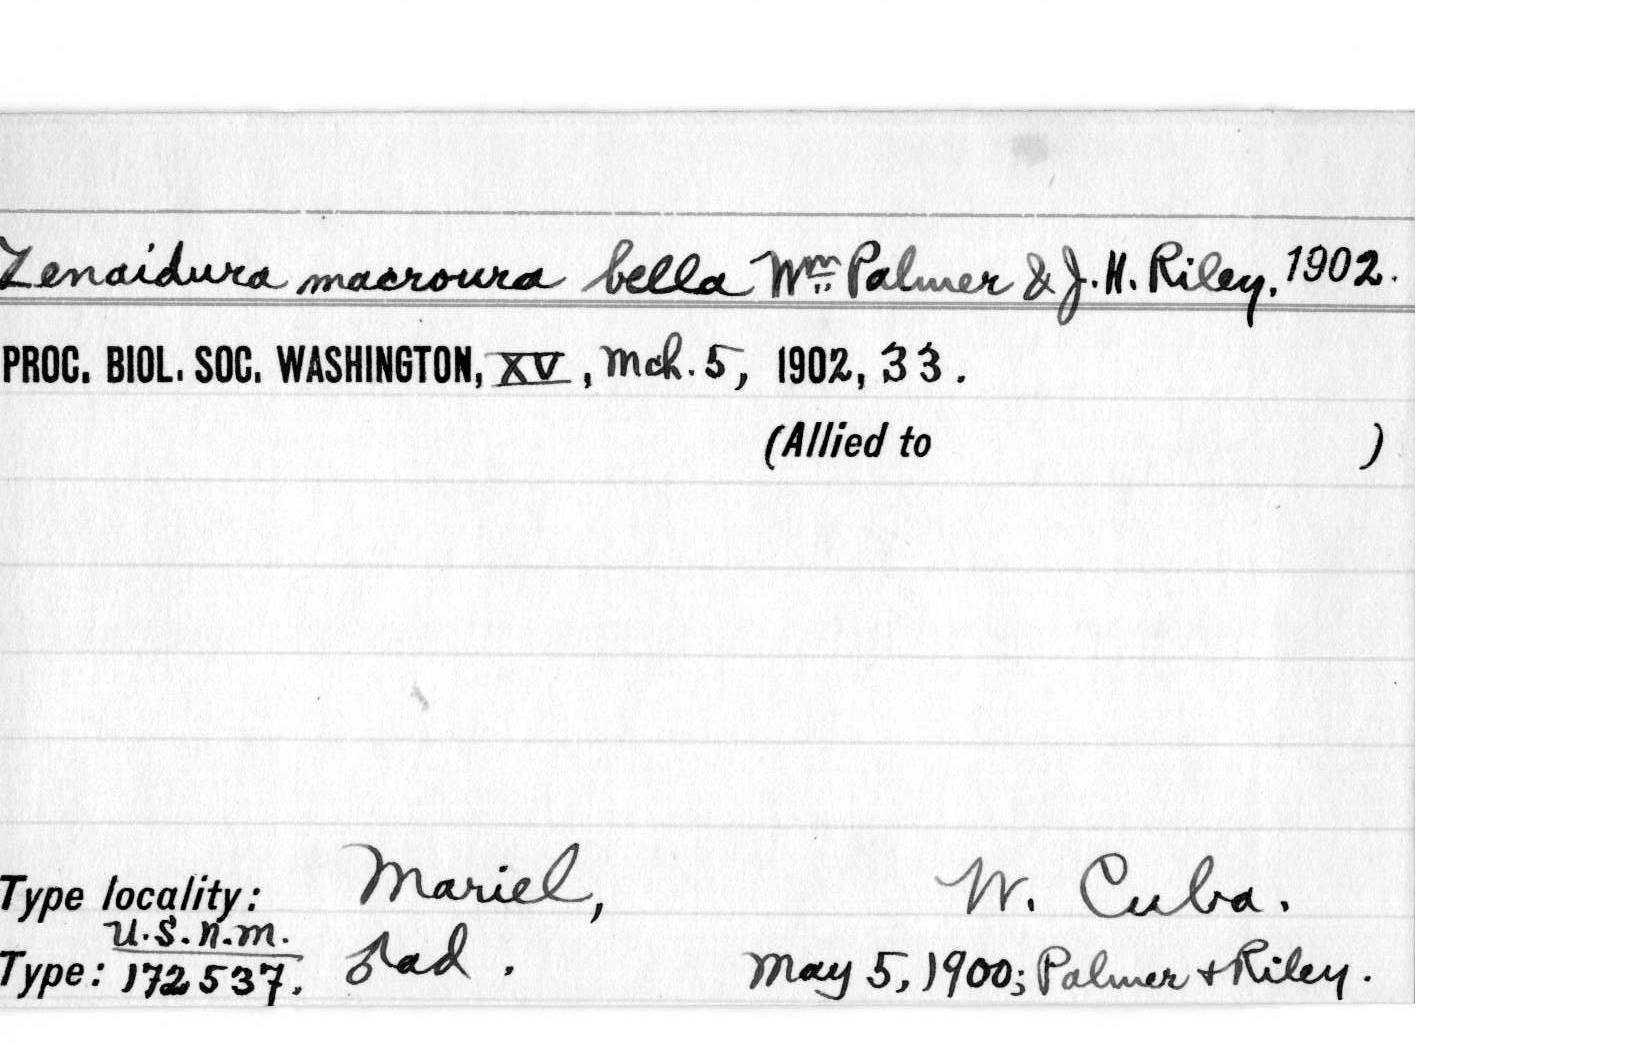 Zenaidura macroura bella Wm. Palmer & J. H. Riley, 1902.
PROC. BIOL. SOC. WASHINGTON, XV, Mch. 5, 1902, 33.
(Allied to )
Type locality: Mariel, W. Cuba.
U.S.N.M.
Type: 172537. ♂ad. May 5, 1900; Palmer & Riley.